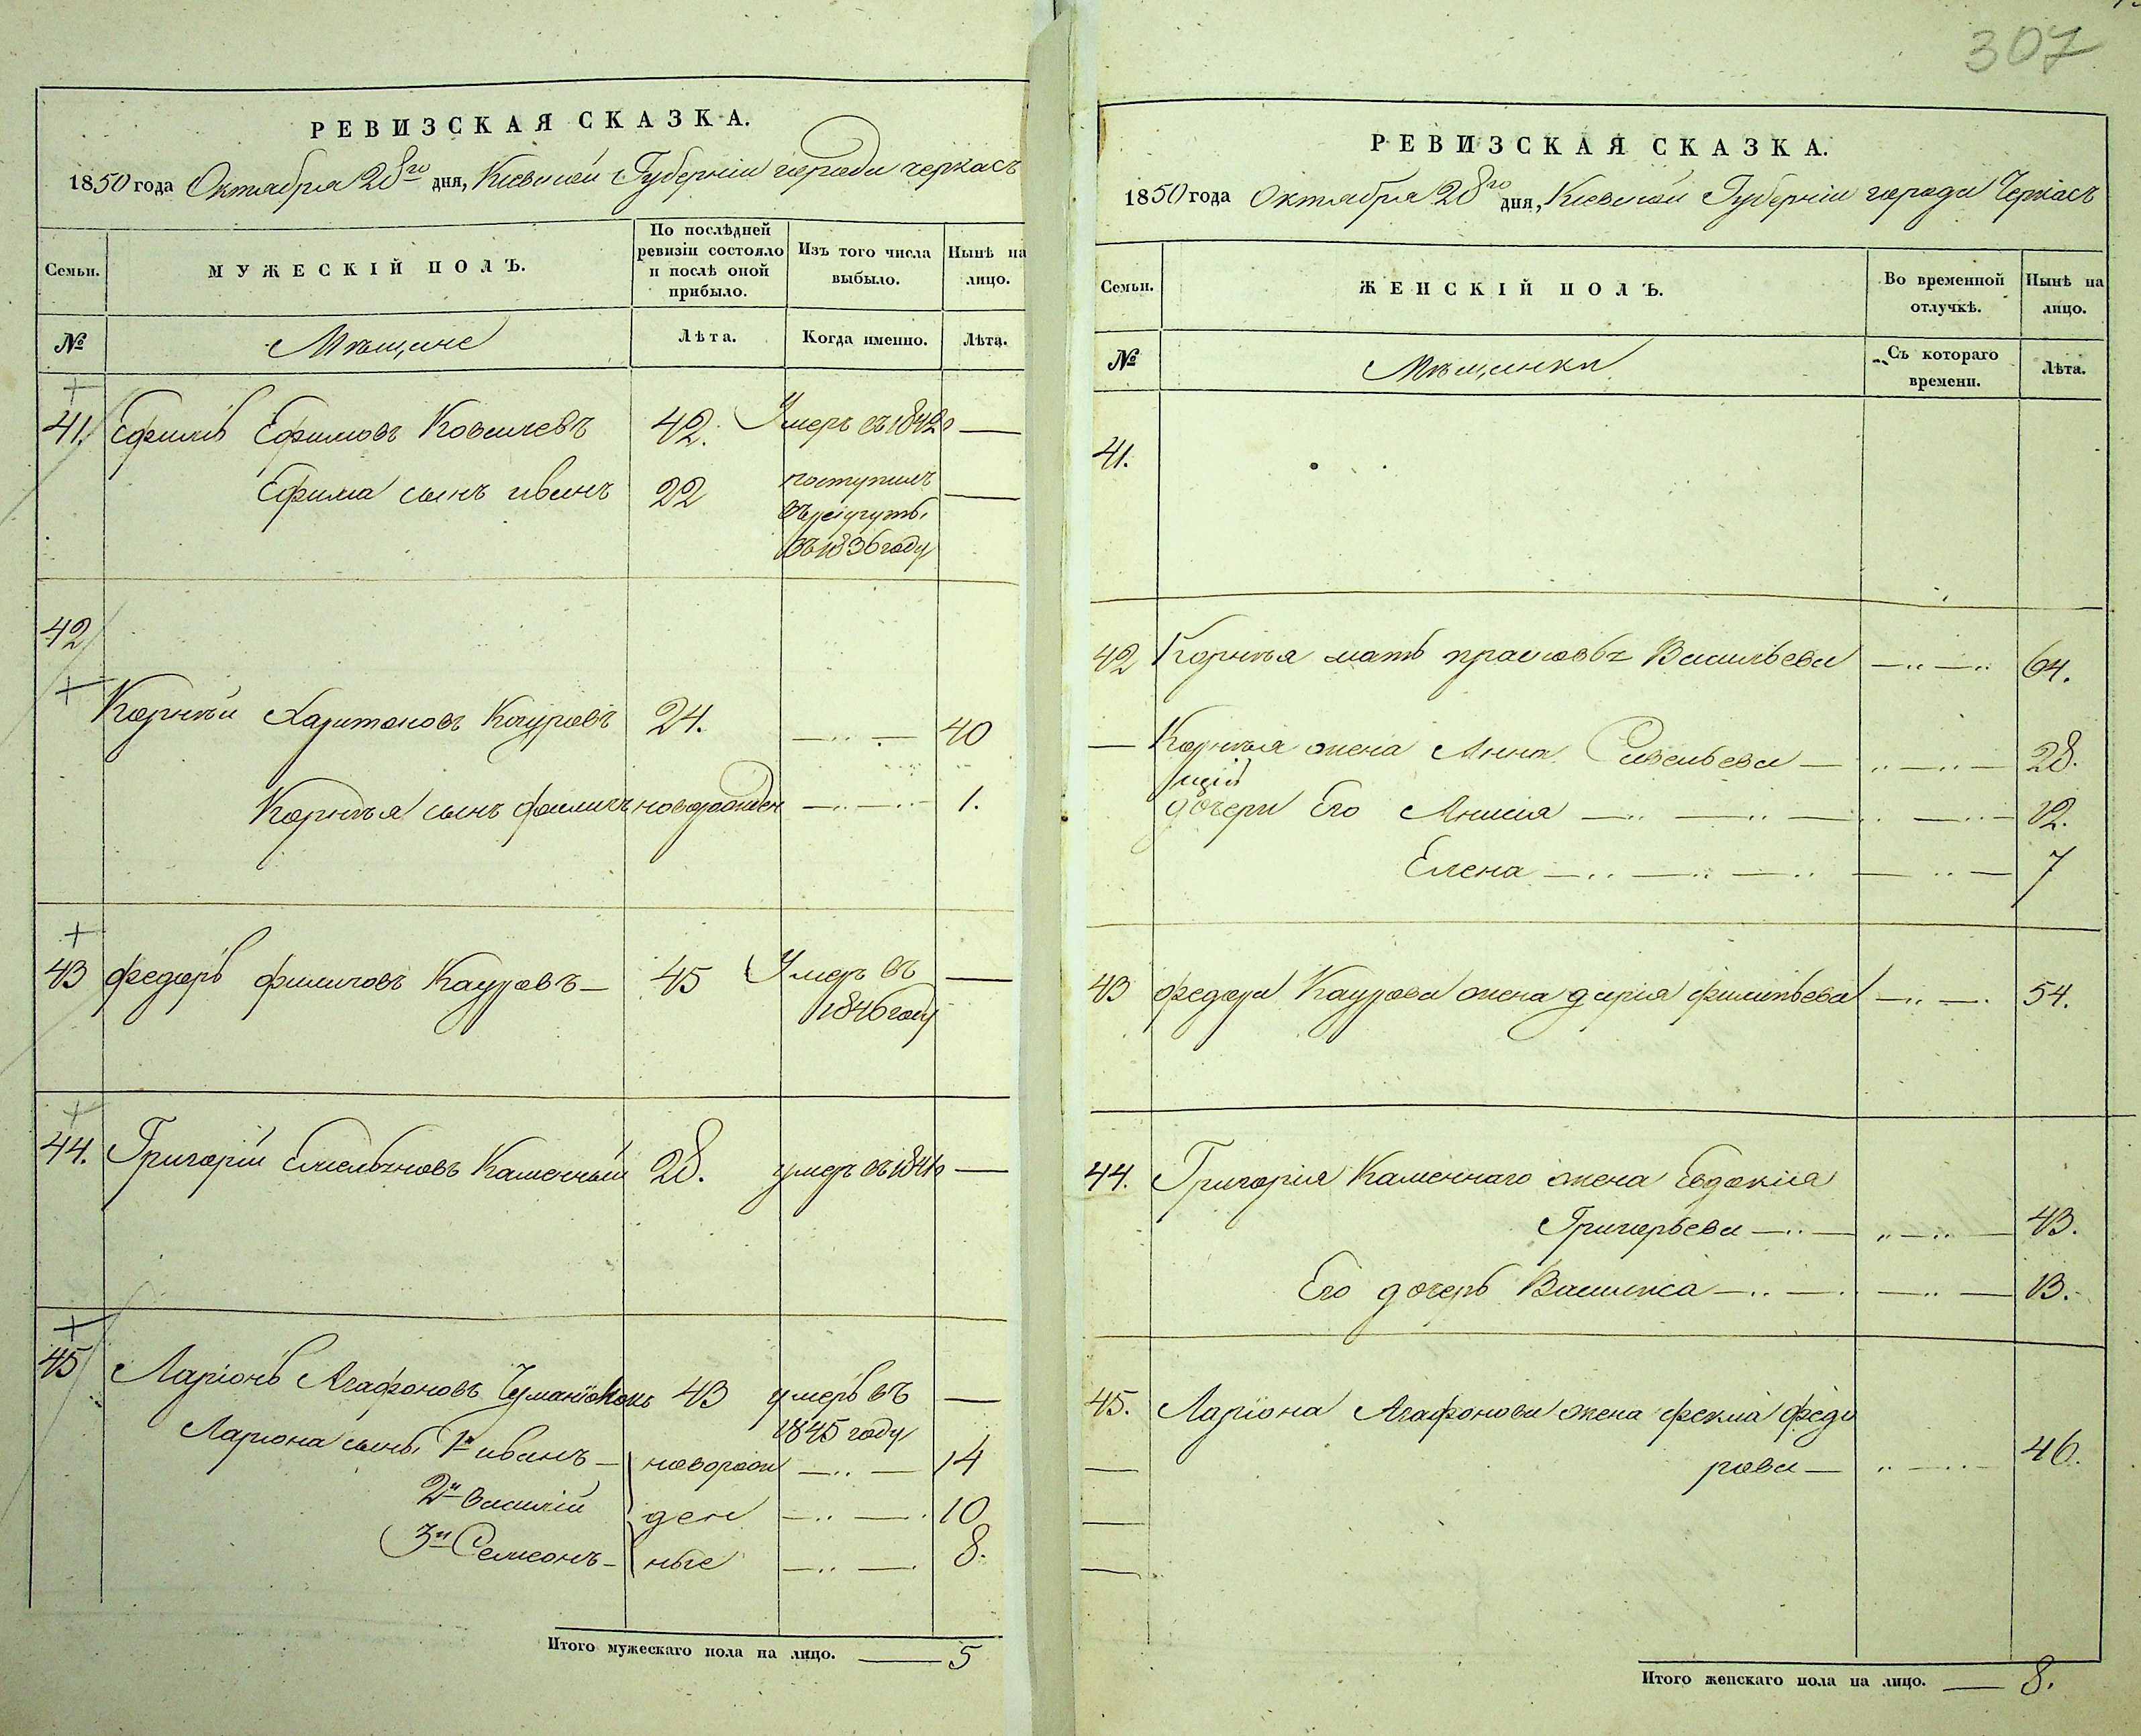 307
РЕВИЗСКАЯ СКАЗКА.
1850 года Октября 28го дня, Кіевской Губерніи города черкасъ
Семьи.
МУЖЕСКІЙ ПОЛЪ.
По послѣдней ревизіи состояло и послѣ оной прибыло.
Изъ того числа выбыло.
Нынѣ на лицо.
№
Мѣщане
Лѣта.
Когда именно.
Лѣта.
41. Ефимъ Ефимовъ 42. Умеръ въ 1842 —
Ефима сынъ иванъ 22 поступилъ —
въ рекруты
въ 1836 году
42
Корнѣй Харитоновъ Кауровъ 24. — 40
Корнѣя сынъ новорожден — 1.
43 федоръ филиповъ Кауровъ — 45 Умеръ въ —
1846 году
44. Григорій Емельяновъ Каменный 28. умеръ въ —
45 Ларіонъ Агафоновъ 43 умеръ въ —
1845 году
Ларіона сынъ 1й иванъ — новорож — 14
2й василій ден — 10
3й Семеонъ — ные — 8.
Итого мужескаго пола на лицо. — 5
РЕВИЗСКАЯ СКАЗКА.
1850 года Октября 28го дня, Кіевской Губерніи города Черкасъ
Семьи.
ЖЕНСКІЙ ПОЛЪ.
Во временной отлучкѣ.
Нынѣ на лицо.
№
Мѣщанки
Съ котораго времени.
Лѣта.
41.
42 Корнѣя мать Васильева — 64.
— Корнѣя жена Анна Савельева — 28.
дочери Его Анисія — 12.
Елена — 7
43 федора Каурова жена дарія филипьева — 54.
44. Григорія Каменнаго жена Евдокія
Григорьева — 43.
Его дочерь Василиса — 13.
45. Ларіона Агафонова жена фекла федо
рова — 46.
Итого женскаго пола на лицо. — 8.